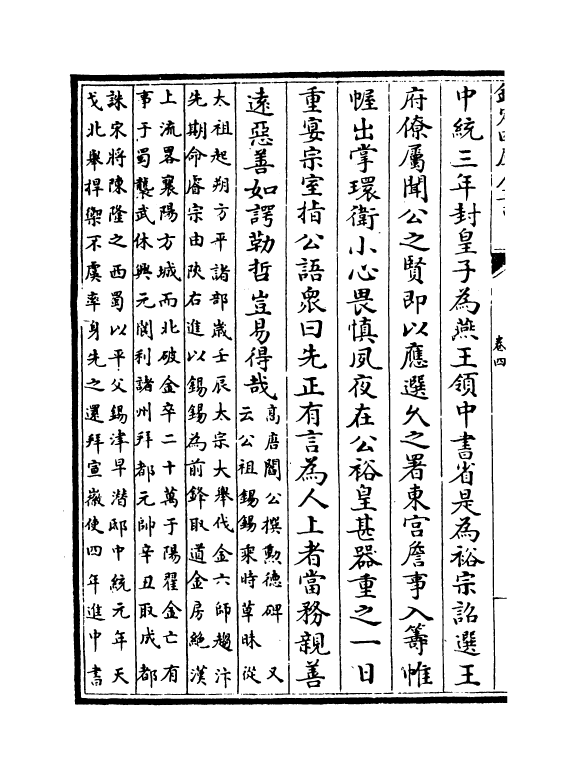 欽定四庫全書
卷四
中統三年封皇子為燕王領中書省是為裕宗詔選王
府僚屬聞公之賢即以應選久之署東宫詹事入籌帷
幄出掌環衛小心畏慎夙夜在公裕皇甚器重之一日
重宴宗室指公語衆曰先正有言為人上者當務親善
遠惡善如諤勒哲豈易得哉
高唐閻公撰勲德碑 又
云公祖錫錫乘時草昧從
太祖起朔方平諸部歳壬辰太宗大舉伐金六師趨汴
先期命睿宗由陜右進以錫錫為前鋒取道金房絶漢
上流畧襄陽方城而北破金卒二十萬于陽翟金亡有
事于蜀襲武休興元閬利諸州拜都元帥辛丑取成都
誅宋將陳隆之西蜀以平父錫津早潜邸中統元年天
戈北舉捍禦不虞率身先之還拜宣徽使四年進中書